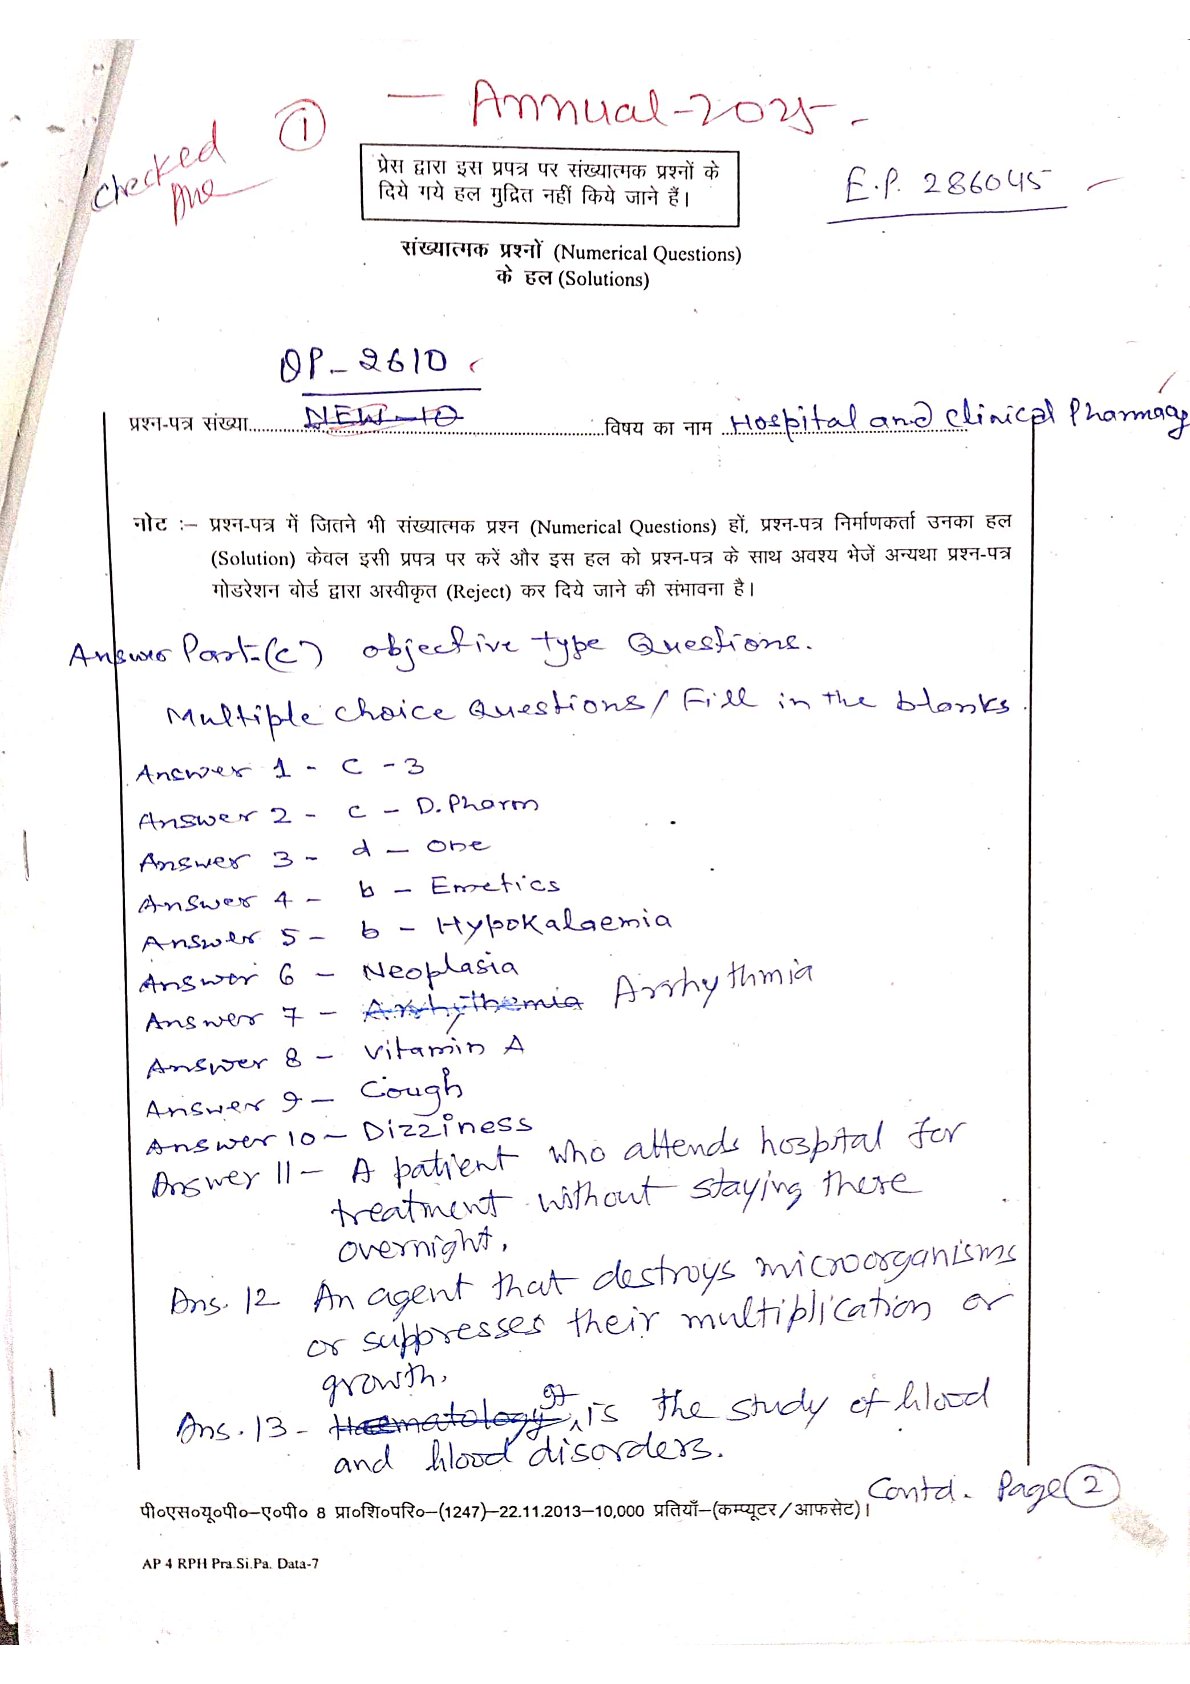 ① — Annual-2025 -
Checked
प्रेस द्वारा इस प्रपत्र पर संख्यात्मक प्रश्नों के
दिये गये हल मुद्रित नहीं किये जाने हैं।
E.P. 286045
संख्यात्मक प्रश्नों (Numerical Questions)
के हल (Solutions)
QP- 2610
प्रश्न-पत्र संख्या NEW-10 विषय का नाम Hospital and Clinical Pharmacy
नोट :– प्रश्न-पत्र में जितने भी संख्यात्मक प्रश्न (Numerical Questions) हों, प्रश्न-पत्र निर्माणकर्ता उनका हल
(Solution) केवल इसी प्रपत्र पर करें और इस हल को प्रश्न-पत्र के साथ अवश्य भेजें अन्यथा प्रश्न-पत्र
गोडरेशन बोर्ड द्वारा अस्वीकृत (Reject) कर दिये जाने की संभावना है।
Answer Part-(C) objective type Questions.
Multiple choice Questions/Fill in the blanks.
Answer 1 - C - 3
Answer 2 - C - D.Pharm
Answer 3 - d - One
Answer 4 - b - Emetics
Answer 5 - b - Hypokalaemia
Answer 6 - Neoplasia
Answer 7 - Arrhythemia Arrhythmia
Answer 8 - Vitamin A
Answer 9 - Cough
Answer 10 - Dizziness
Answer 11 - A patient who attends hospital for
treatment without staying there
overnight.
Ans. 12 An agent that destroys microorganisms
or suppresses their multiplication or
growth.
Ans. 13 - Haematology It is the study of blood
and blood disorders.
Contd. Page ②
पी०एस०यू०पी०–ए०पी० 8 प्रा०शि०परि०–(1247)–22.11.2013–10,000 प्रतियाँ–(कम्प्यूटर/आफसेट)।
AP 4 RPH Pra.Si.Pa. Data-7